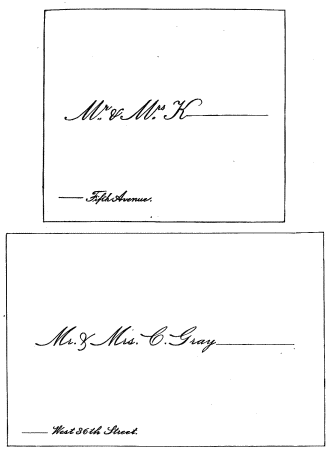 Mr. & Mrs. K
Fifth Avenue.
Mr. & Mrs. C. Gray
West 36th Street.